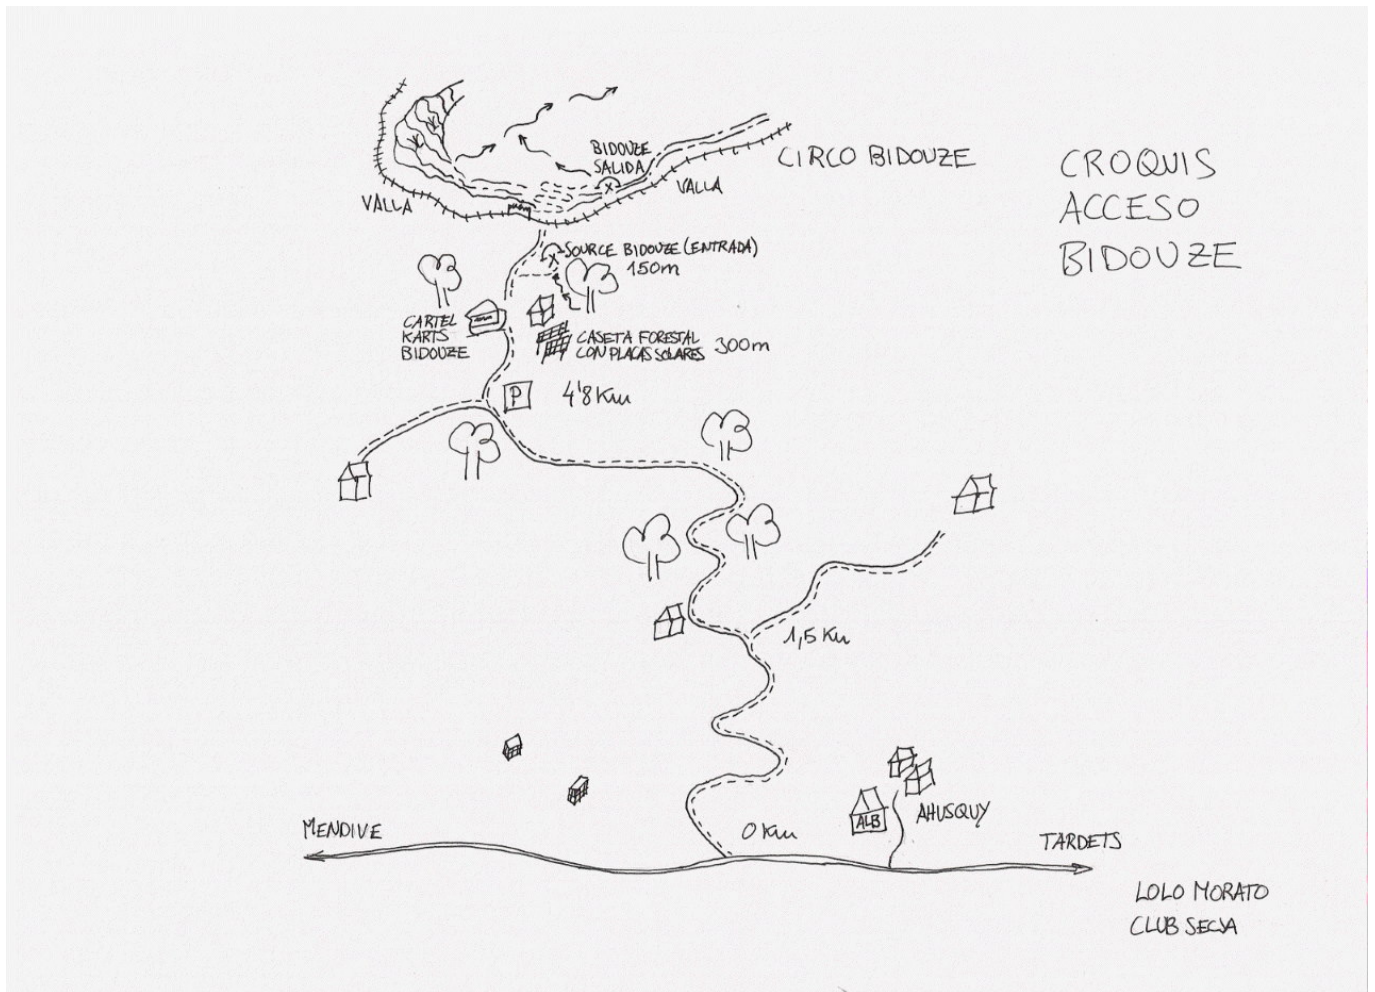 CROQUIS
ACCESO
BIDOUZE
BIDOUZE
SALIDA
CIRCO BIDOUZE
VALLA
VALLA
SOURCE BIDOUZE (ENTRADA)
150m
CARTEL
KARTS
BIDOUZE
CASETA FORESTAL
CON PLACAS SOLARES
300m
P
4'8 Km
1,5 Km
MENDIVE
0 Km
ALB
AHUSQUY
TARDETS
LOLO MORATO
CLUB SECJA